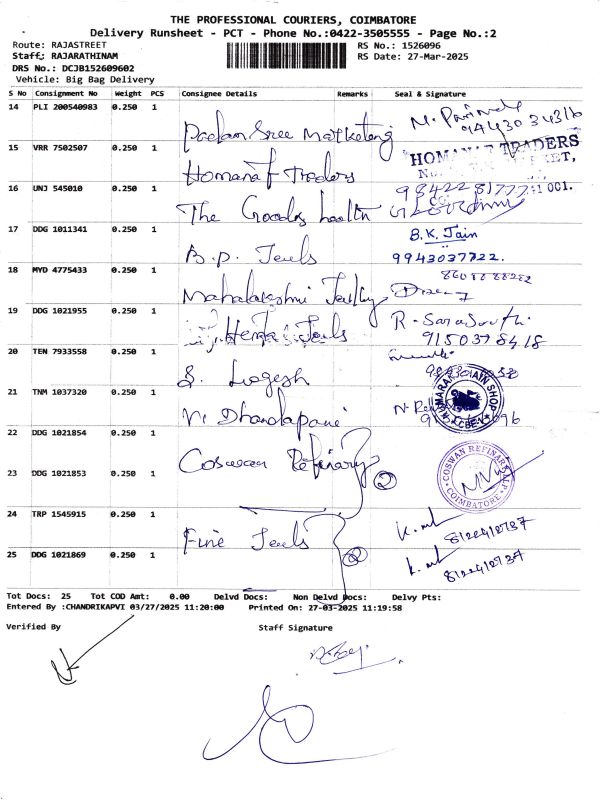 THE PROFESSIONAL COURIERS, COIMBATORE
Delivery Runsheet - PCT - Phone No.:0422-3505555 - Page No.:2
Route: RAJASTREET
RS No.: 1526096
Staff: RAJARATHINAM
RS Date: 27-Mar-2025
DRS No.: DCJB152609602
Vehicle: Big Bag Delivery
S No Consignment No Weight PCS Consignee Details Remarks Seal & Signature
14 PLI 200540983 0.250 1 Padam Sree Marketing
15 VRR 7502507 0.250 1 Homanat Traders TRADERS
16 UNJ 545010 0.250 1 The Goodes health
17 DDG 1011341 0.250 1 B.P. Jewels B.K. Jain
9943037722.
18 MYD 4775433 0.250 1 Mahalakshmi
19 DDG 1021955 0.250 1 Jewels
9150378418
20 TEN 7933558 0.250 1 S. Logesh
21 TNM 1037320 0.250 1 V. Dhandapani
22 DDG 1021854 0.250 1 Coswan Refinary 2
23 DDG 1021853 0.250 1 COSWAN REFINARY LLP COIMBATORE
24 TRP 1545915 0.250 1 Fine Jewels 2
8122412737
25 DDG 1021869 0.250 1
8122412737
Tot Docs: 25 Tot COD Amt: 0.00 Delvd Docs: Non Delvd Docs: Delvy Pts:
Entered By :CHANDRIKAPVI 03/27/2025 11:20:00 Printed On: 27-03-2025 11:19:58
Verified By Staff Signature